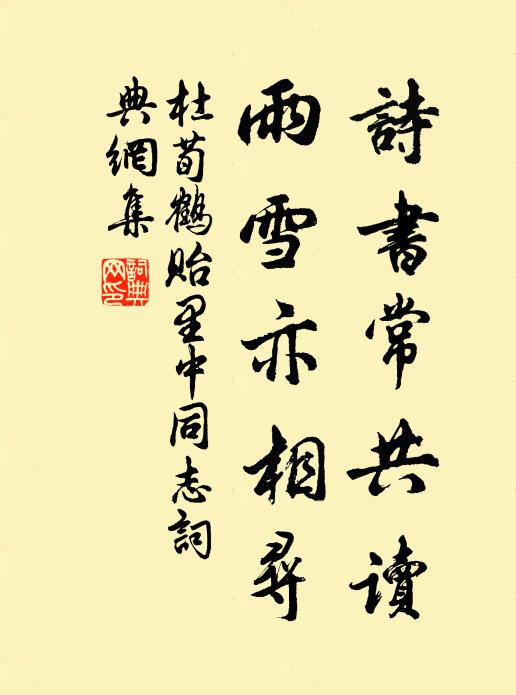 詩書常共讀
雨雪亦相尋
杜荀鶴貽里中同志詞
典網集
詞典
网印